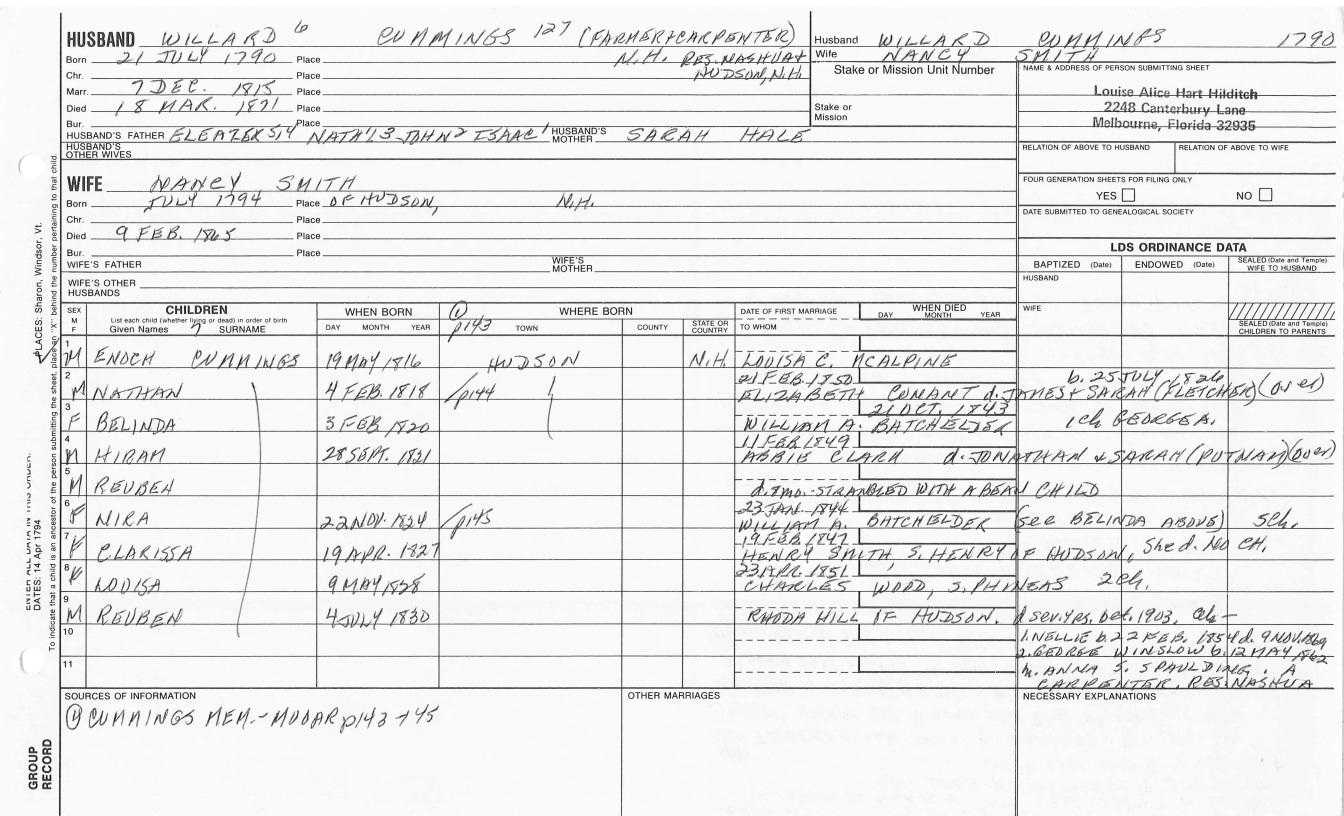 HUSBAND WILLARD 6 CUMMINGS 127 (FARMER+CARPENTER)
Born 21 JULY 1790 Place N.H. RES. NASHUA+
Chr. Place HUDSON, N.H.
Marr. 7 DEC. 1815 Place
Died 18 MAR. 1871 Place
Bur. Place
HUSBAND'S FATHER ELEAZER 5,4 NATH'L3 JOHN2 ISAAC1 HUSBAND'S MOTHER SARAH HALE
HUSBAND'S OTHER WIVES
Husband WILLARD CUMMINGS 1790
Wife NANCY SMITH
Stake or Mission Unit Number
Stake or Mission
NAME & ADDRESS OF PERSON SUBMITTING SHEET
Louise Alice Hart Hilditch
2248 Canterbury Lane
Melbourne, Florida 32935
RELATION OF ABOVE TO HUSBAND RELATION OF ABOVE TO WIFE
FOUR GENERATION SHEETS FOR FILING ONLY
YES NO
DATE SUBMITTED TO GENEALOGICAL SOCIETY
WIFE NANCY SMITH
Born JULY 1794 Place OF HUDSON, N.H.
Chr. Place
Died 9 FEB. 1865 Place
Bur. Place
WIFE'S FATHER WIFE'S MOTHER
WIFE'S OTHER HUSBANDS
LDS ORDINANCE DATA
BAPTIZED (Date) ENDOWED (Date) SEALED (Date and Temple) WIFE TO HUSBAND
HUSBAND
WIFE
SEALED (Date and Temple) CHILDREN TO PARENTS
SEX M F CHILDREN List each child (whether living or dead) in order of birth Given Names 7 SURNAME
WHEN BORN DAY MONTH YEAR
p143 WHERE BORN TOWN COUNTY STATE OR COUNTRY
DATE OF FIRST MARRIAGE TO WHOM
WHEN DIED DAY MONTH YEAR
1 M ENOCH CUMMINGS 19 MAY 1816 HUDSON N.H. LOUISA C. MCALPINE
21 FEB. 1850 b. 25 JULY 1826
2 M NATHAN 4 FEB. 1818 p144 ELIZABETH CONANT d. JAMES + SARAH (FLETCHER) (over)
21 OCT. 1843
3 F BELINDA 3 FEB 1820 WILLIAM A. BATCHELDER 1ch GEORGE A.
11 FEB 1849
4 M HIRAM 28 SEPT. 1821 ABBIE CLARK d. JONATHAN & SARAH (PUTNAM) (over)
5 M REUBEN d. 7mo. - STRANGLED WITH A BEAN CHILD
23 JAN. 1844
6 F NIRA 22 NOV. 1824 p145 WILLIAM A. BATCHELDER (see BELINDA ABOVE) 5ch.
19 FEB 1847
7 F CLARISSA 19 APR. 1827 HENRY SMITH, S. HENRY OF HUDSON, She d. NO CH.
23 APR. 1851
8 F LOUISA 9 MAY 1828 CHARLES WOOD, S. PHINEAS 2ch.
9 M REUBEN 4 JULY 1830 RHODA HILL OF HUDSON. d sev. yrs. bet. 1903, ch -
10 1. NELLIE b. 22 FEB. 1854 d. 9 NOV. 1869
2. GEORGE WINSLOW b. 12 MAY 1862
11 m. ANNA S. SPAULDING. A
CARPENTER. RES. NASHUA
SOURCES OF INFORMATION
CUMMINGS MEM. - MUDAR p143 + 45
OTHER MARRIAGES
NECESSARY EXPLANATIONS
PLACES: Sharon, Windsor, Vt.
DATES: 14 Apr 1794
To indicate that a child is an ancestor of the person submitting the sheet, place an "X" behind the number pertaining to that child.
GROUP RECORD